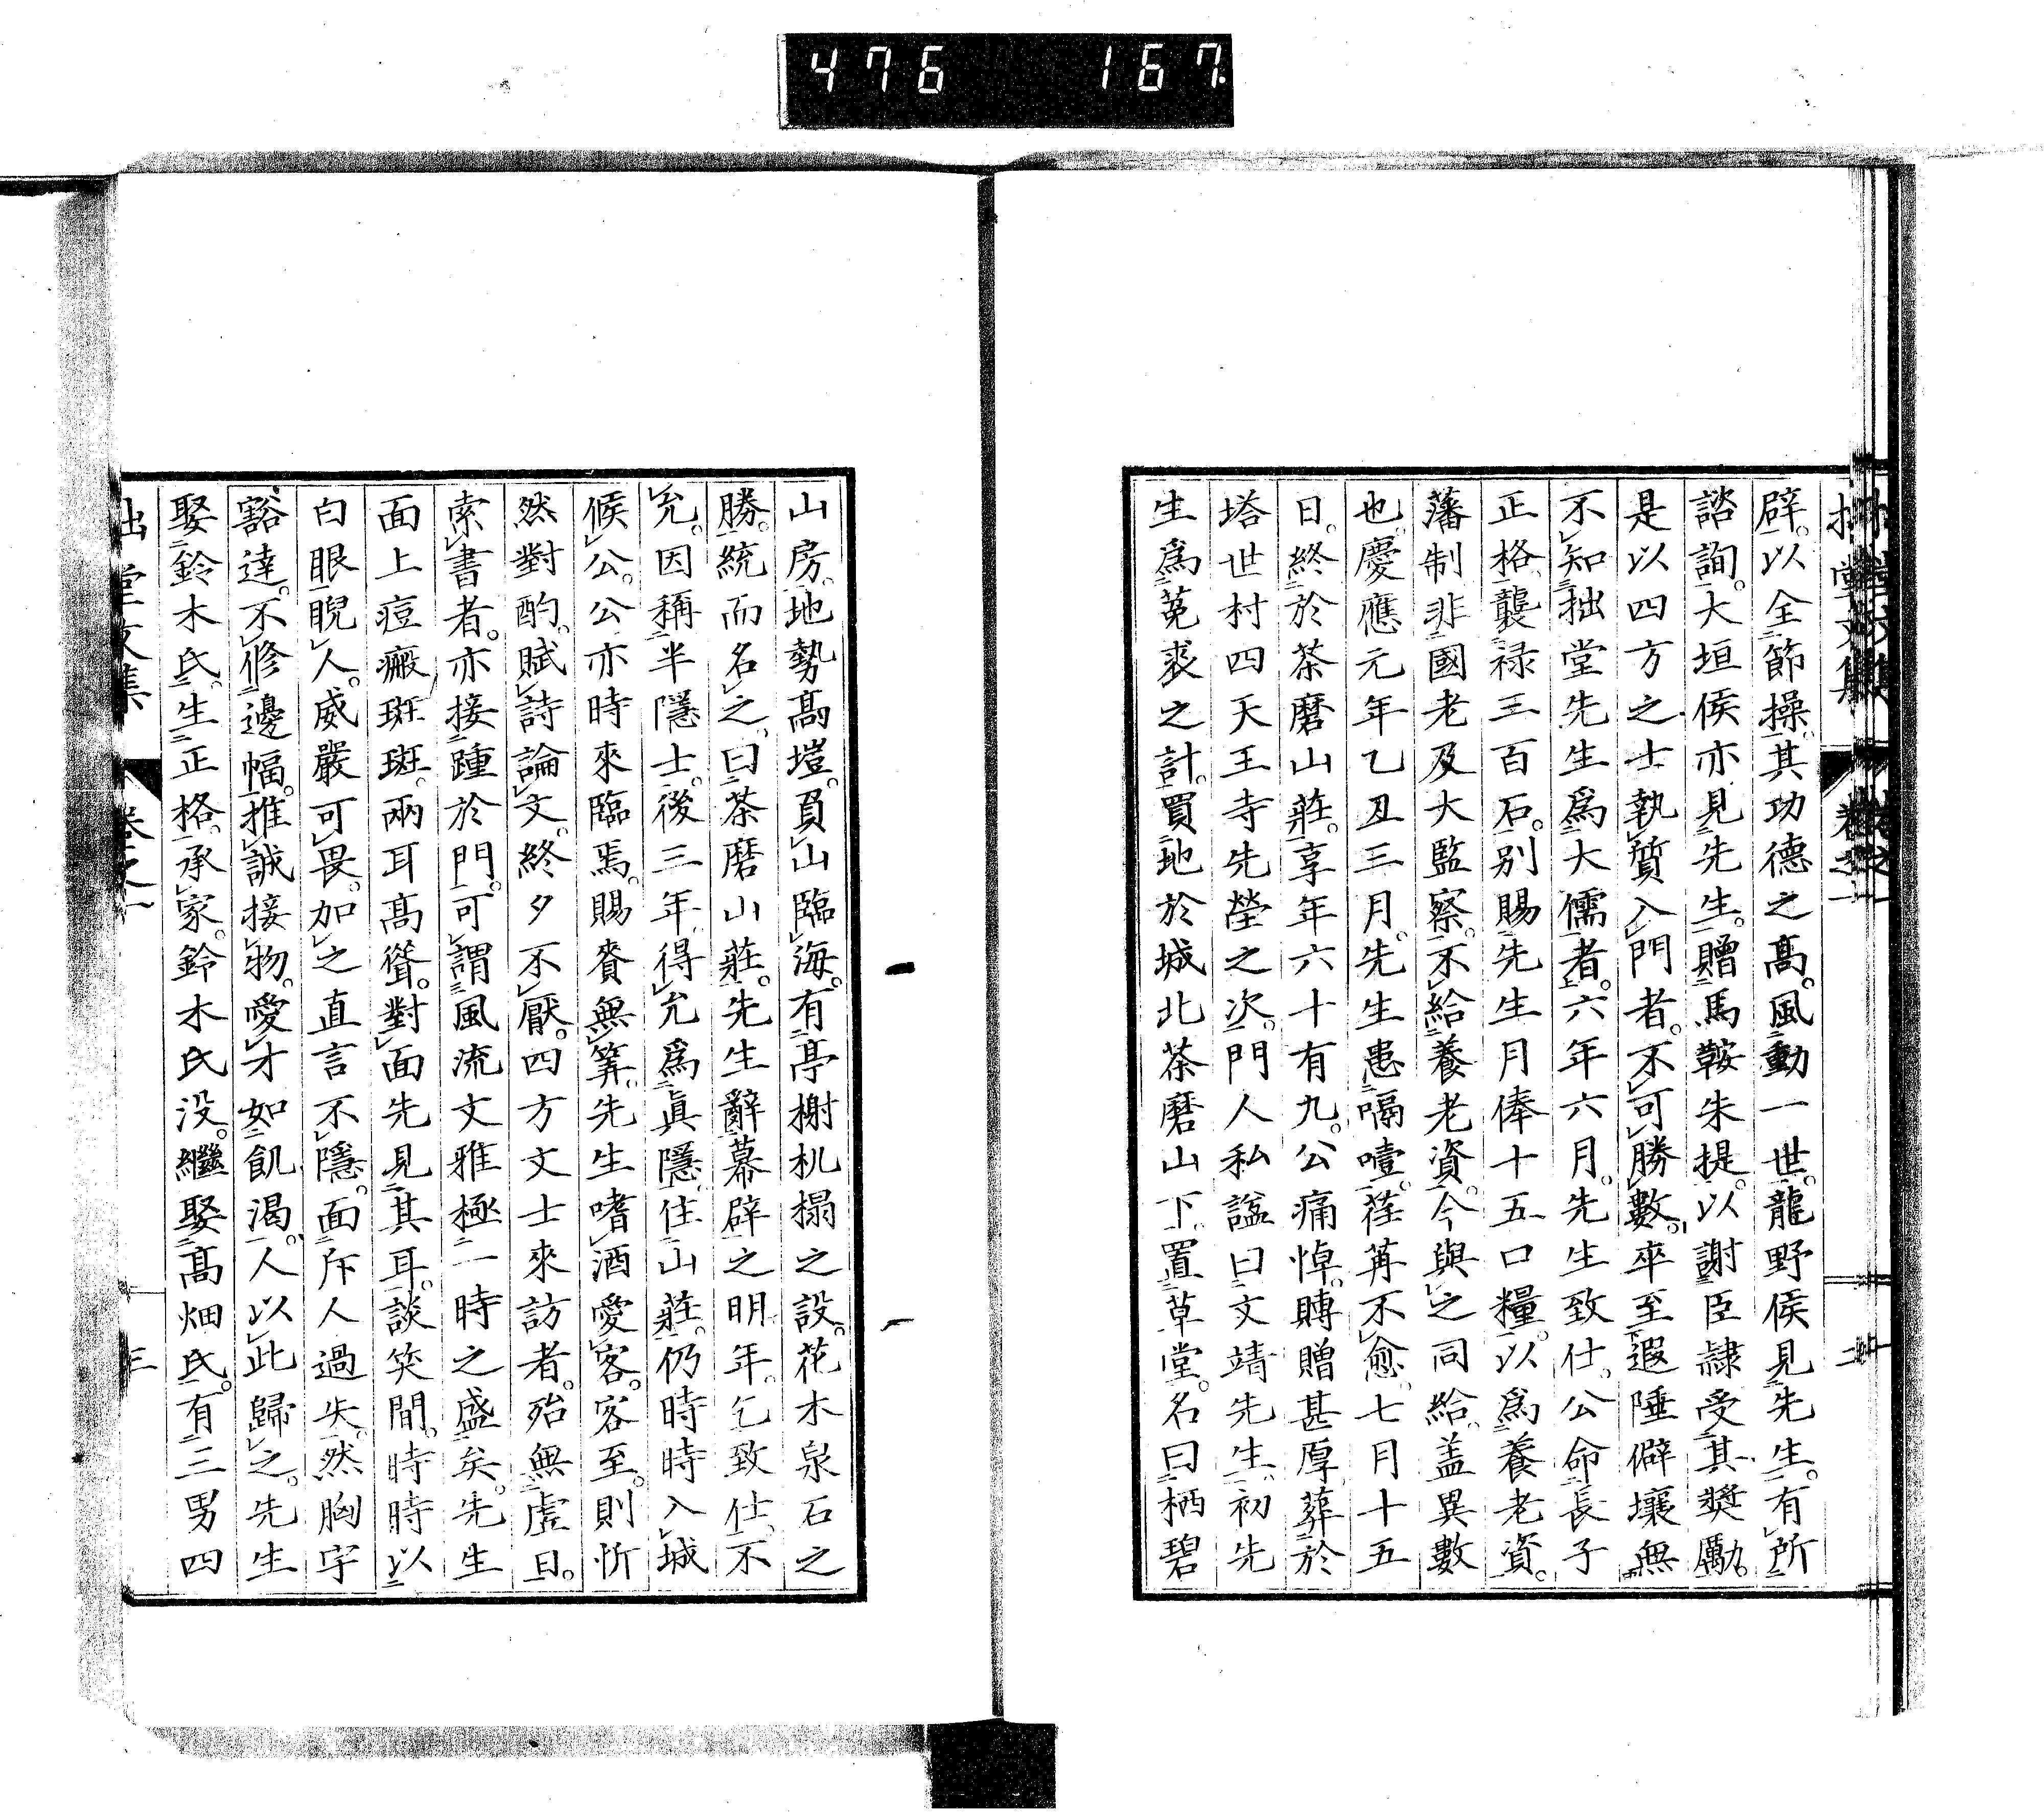 476 167
辟。以全節操。其功德之高。風動一世。龍野侯見先生。有所
諮詢。大垣侯亦見先生。贈馬鞍朱提。以謝臣隷受其奬勵。
是以四方之士執質入門者。不可勝數。卒至遐陲僻壤無
不知拙堂先生爲大儒者。六年六月。先生致仕。公命長子
正格。襲祿三百石。別賜先生月俸十五口糧。以爲養老資。
藩制非國老及大監察。不給養老資。今與之同給。盖異數
也。慶應元年乙丑三月。先生患嗝噎。荏苒不愈。七月十五
日。終於茶磨山莊。享年六十有九。公痛悼。賻贈甚厚。葬於
塔世村四天王寺先塋之次。門人私謚曰文靖先生。初先
生爲菟裘之計。買地於城北茶磨山下。置草堂。名曰栖碧
山房。地勢高塏。負山臨海。有亭榭机榻之設。花木泉石之
勝。統而名之。曰茶磨山莊。先生辭幕辟之明年。乞致仕。不
允。因稱半隱士。後三年。得允爲眞隱。住山莊。仍時時入城
候公。公亦時來臨焉。賜賚無筭。先生嗜酒愛客。客至。則忻
然對酌。賦詩論文。終夕不厭。四方文士來訪者。殆無虛日。
索書者。亦接踵於門。可謂風流文雅極一時之盛矣。先生
面上痘瘢斑斑。兩耳高聳。對面先見其耳。談笑間。時時以
白眼睨人。威嚴可畏。加之直言不隱。面斥人過失。然胸宇
豁達。不修邊幅。推誠接物。愛才如飢渴。人以此歸之。先生
娶鈴木氏。生正格。承家。鈴木氏沒。繼娶高畑氏。有三男四
拙堂文集 卷之一 三